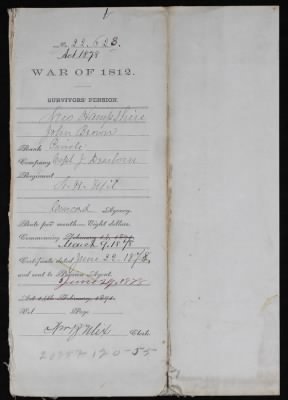 No. 22,623.
Act 1878
WAR OF 1812.
SURVIVORS' PENSION.
New Hampshire
John Brown
Rank Private
Company Capt J. Dearborn
Regiment
N. H. Mil
Concord Agency.
Rate per month—Eight dollars.
Commencing February 14, 1871.
March 9, 1878
Certificate dated June 22, 1878,
and sent to Pension Agent.
June 29, 1878
Act 14th February, 1871.
Vol. Page
Clerk.
20282 120-55